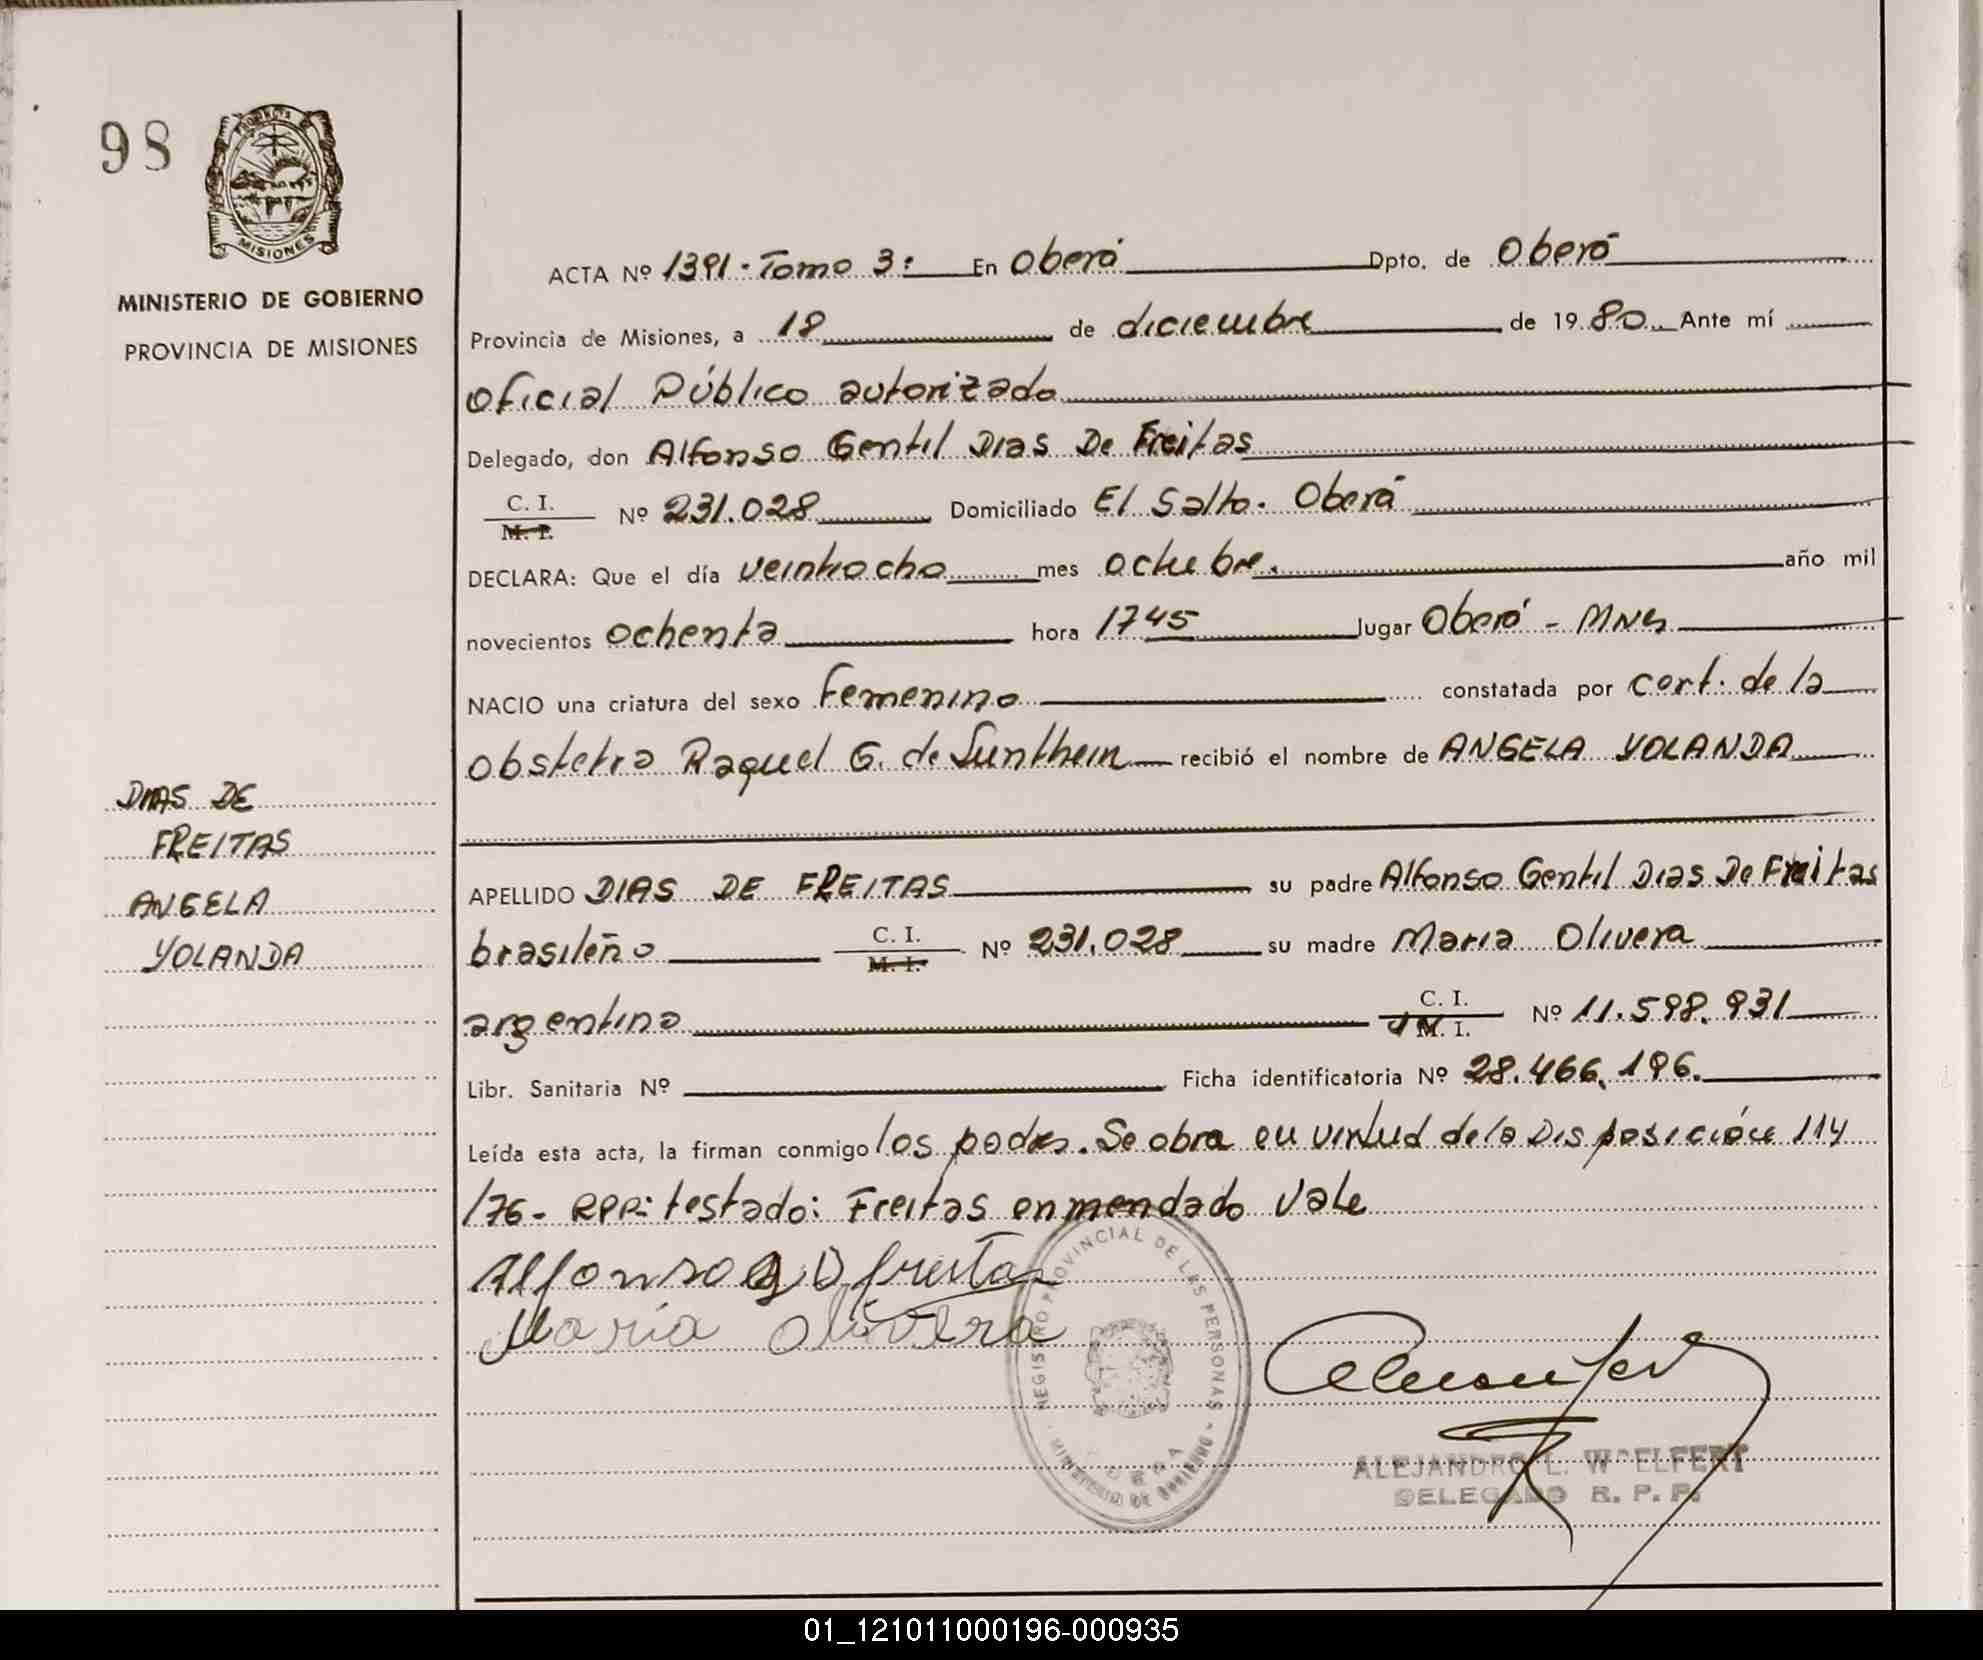 98
PROVINCIA DE
MISIONES
MINISTERIO DE GOBIERNO
PROVINCIA DE MISIONES
DIAS DE
FREITAS
ANGELA
YOLANDA
ACTA Nº 1391 - Tomo 3: En Oberá Dpto. de Oberá
Provincia de Misiones, a 18 de diciembre de 1980 Ante mí
Oficial Público autorizado
Delegado, don Alfonso Gentil Dias De Freitas
C. I.
M. I. Nº 231.028 Domiciliado El Salto. Oberá
DECLARA: Que el día veintiocho mes octubre. año mil
novecientos ochenta hora 1745 lugar Oberá - Mnes
NACIO una criatura del sexo Femenino constatada por cert. de la
obstetra Raquel G. de Sunthein recibió el nombre de ANGELA YOLANDA
APELLIDO DIAS DE FREITAS su padre Alfonso Gentil Dias De Freitas
brasileño C. I. M. I. Nº 231.028 su madre Maria Olivera
argentina C. I. M. I. Nº 11.598.931
Libr. Sanitaria Nº Ficha identificatoria Nº 28.466.196.
Leída esta acta, la firman conmigo los padres. Se obra en virtud de la Disposición 114
/76 - RPP: testado: Freitas enmendado Vale
Alfonso G D freitas
María Olivera
REGISTRO PROVINCIAL DE LAS PERSONAS - MINISTERIO DE GOBIERNO
OBERA
ALEJANDRO L. WOELFERT
DELEGADO R. P. P.
01_121011000196-000935